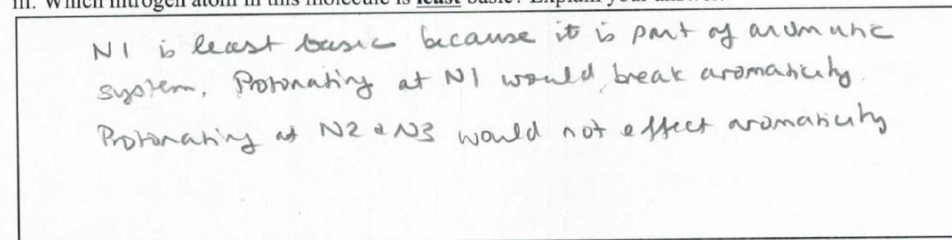 iii. Which nitrogen atom in this molecule is least basic? Explain your answer.
N1 is least basic because it is part of aromatic
system. Protonating at N1 would break aromaticity.
Protonating at N2 & N3 would not effect aromaticity